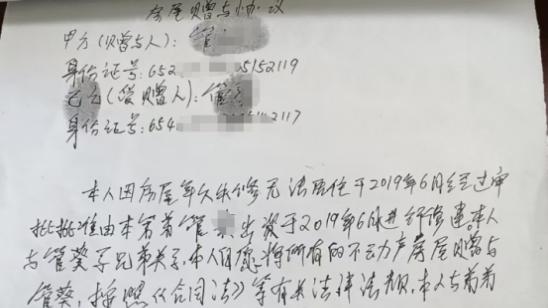 房屋赠与协议
甲方(赠与人):管
身份证号:652 05152119
乙方(受赠人):管
身份证号:654 2117
本人因房屋年久失修无法居住于2019年6月经过审
批批准由本弟弟管 出资于2019年6月进行修建。本人
与管 子兄弟关系,本人自愿将所有的不动产房屋赠与
管 ,按照《合同法》等有关法律法规,本人与弟弟